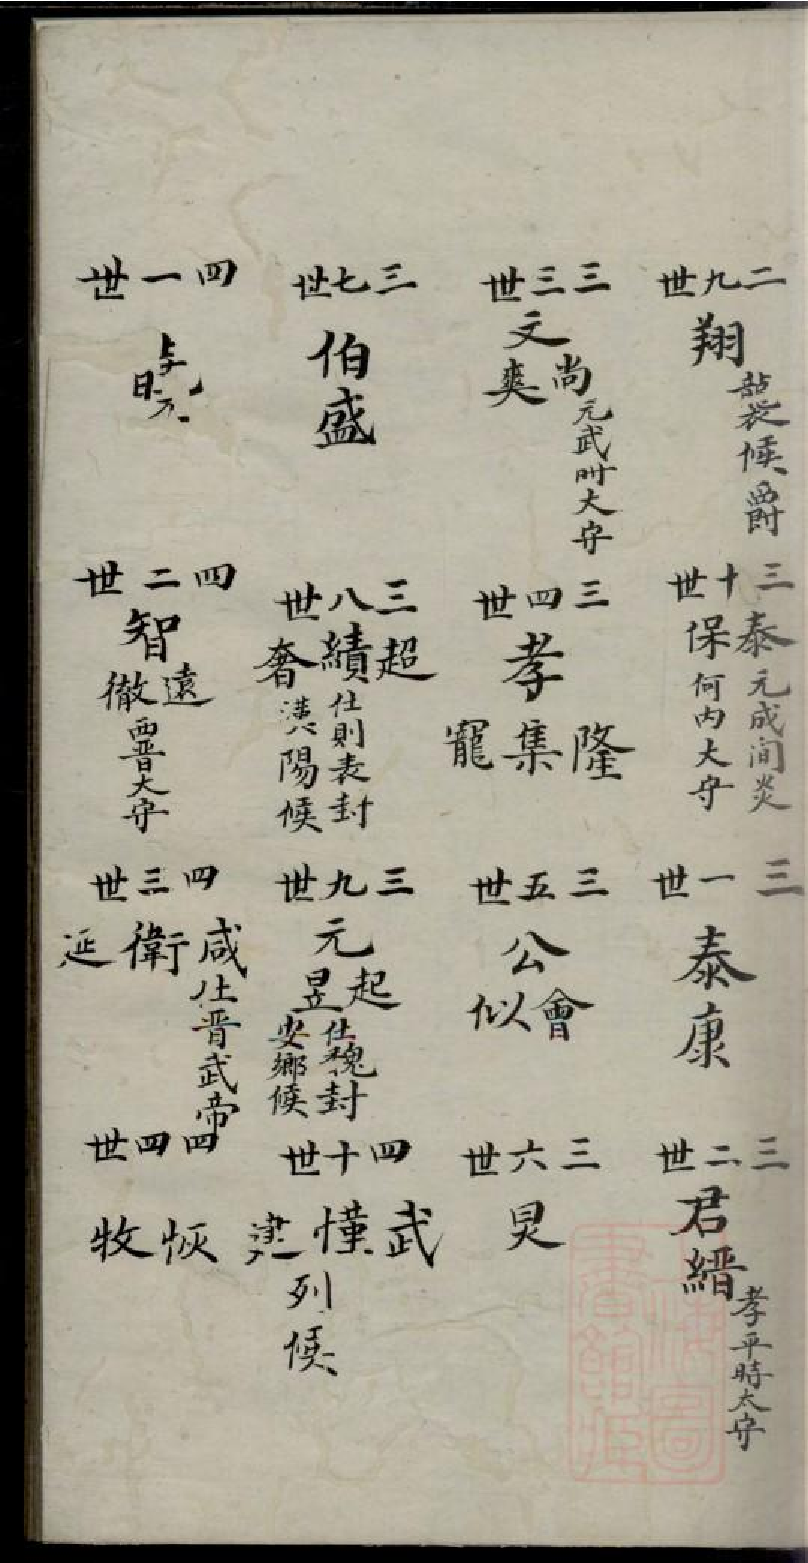 二九世
翔
襲候爵
三十世
泰元成间炎
保何內大守
三一世
泰康
三二世
君縉
孝平時太守
三三世
文
尚元武時大守
爽
三四世
孝
隆
集
寵
三五世
公
會
似
三六世
炅
三七世
伯盛
三八世
超
績仕則表封
奢漢陽候
三九世
元
起
昱仕魏封
安鄉候
四十世
武
懂
建
列候
四一世
四二世
智
遠
徹西晋大守
四三世
咸仕晋武帝
衛
延
四四世
恢
牧